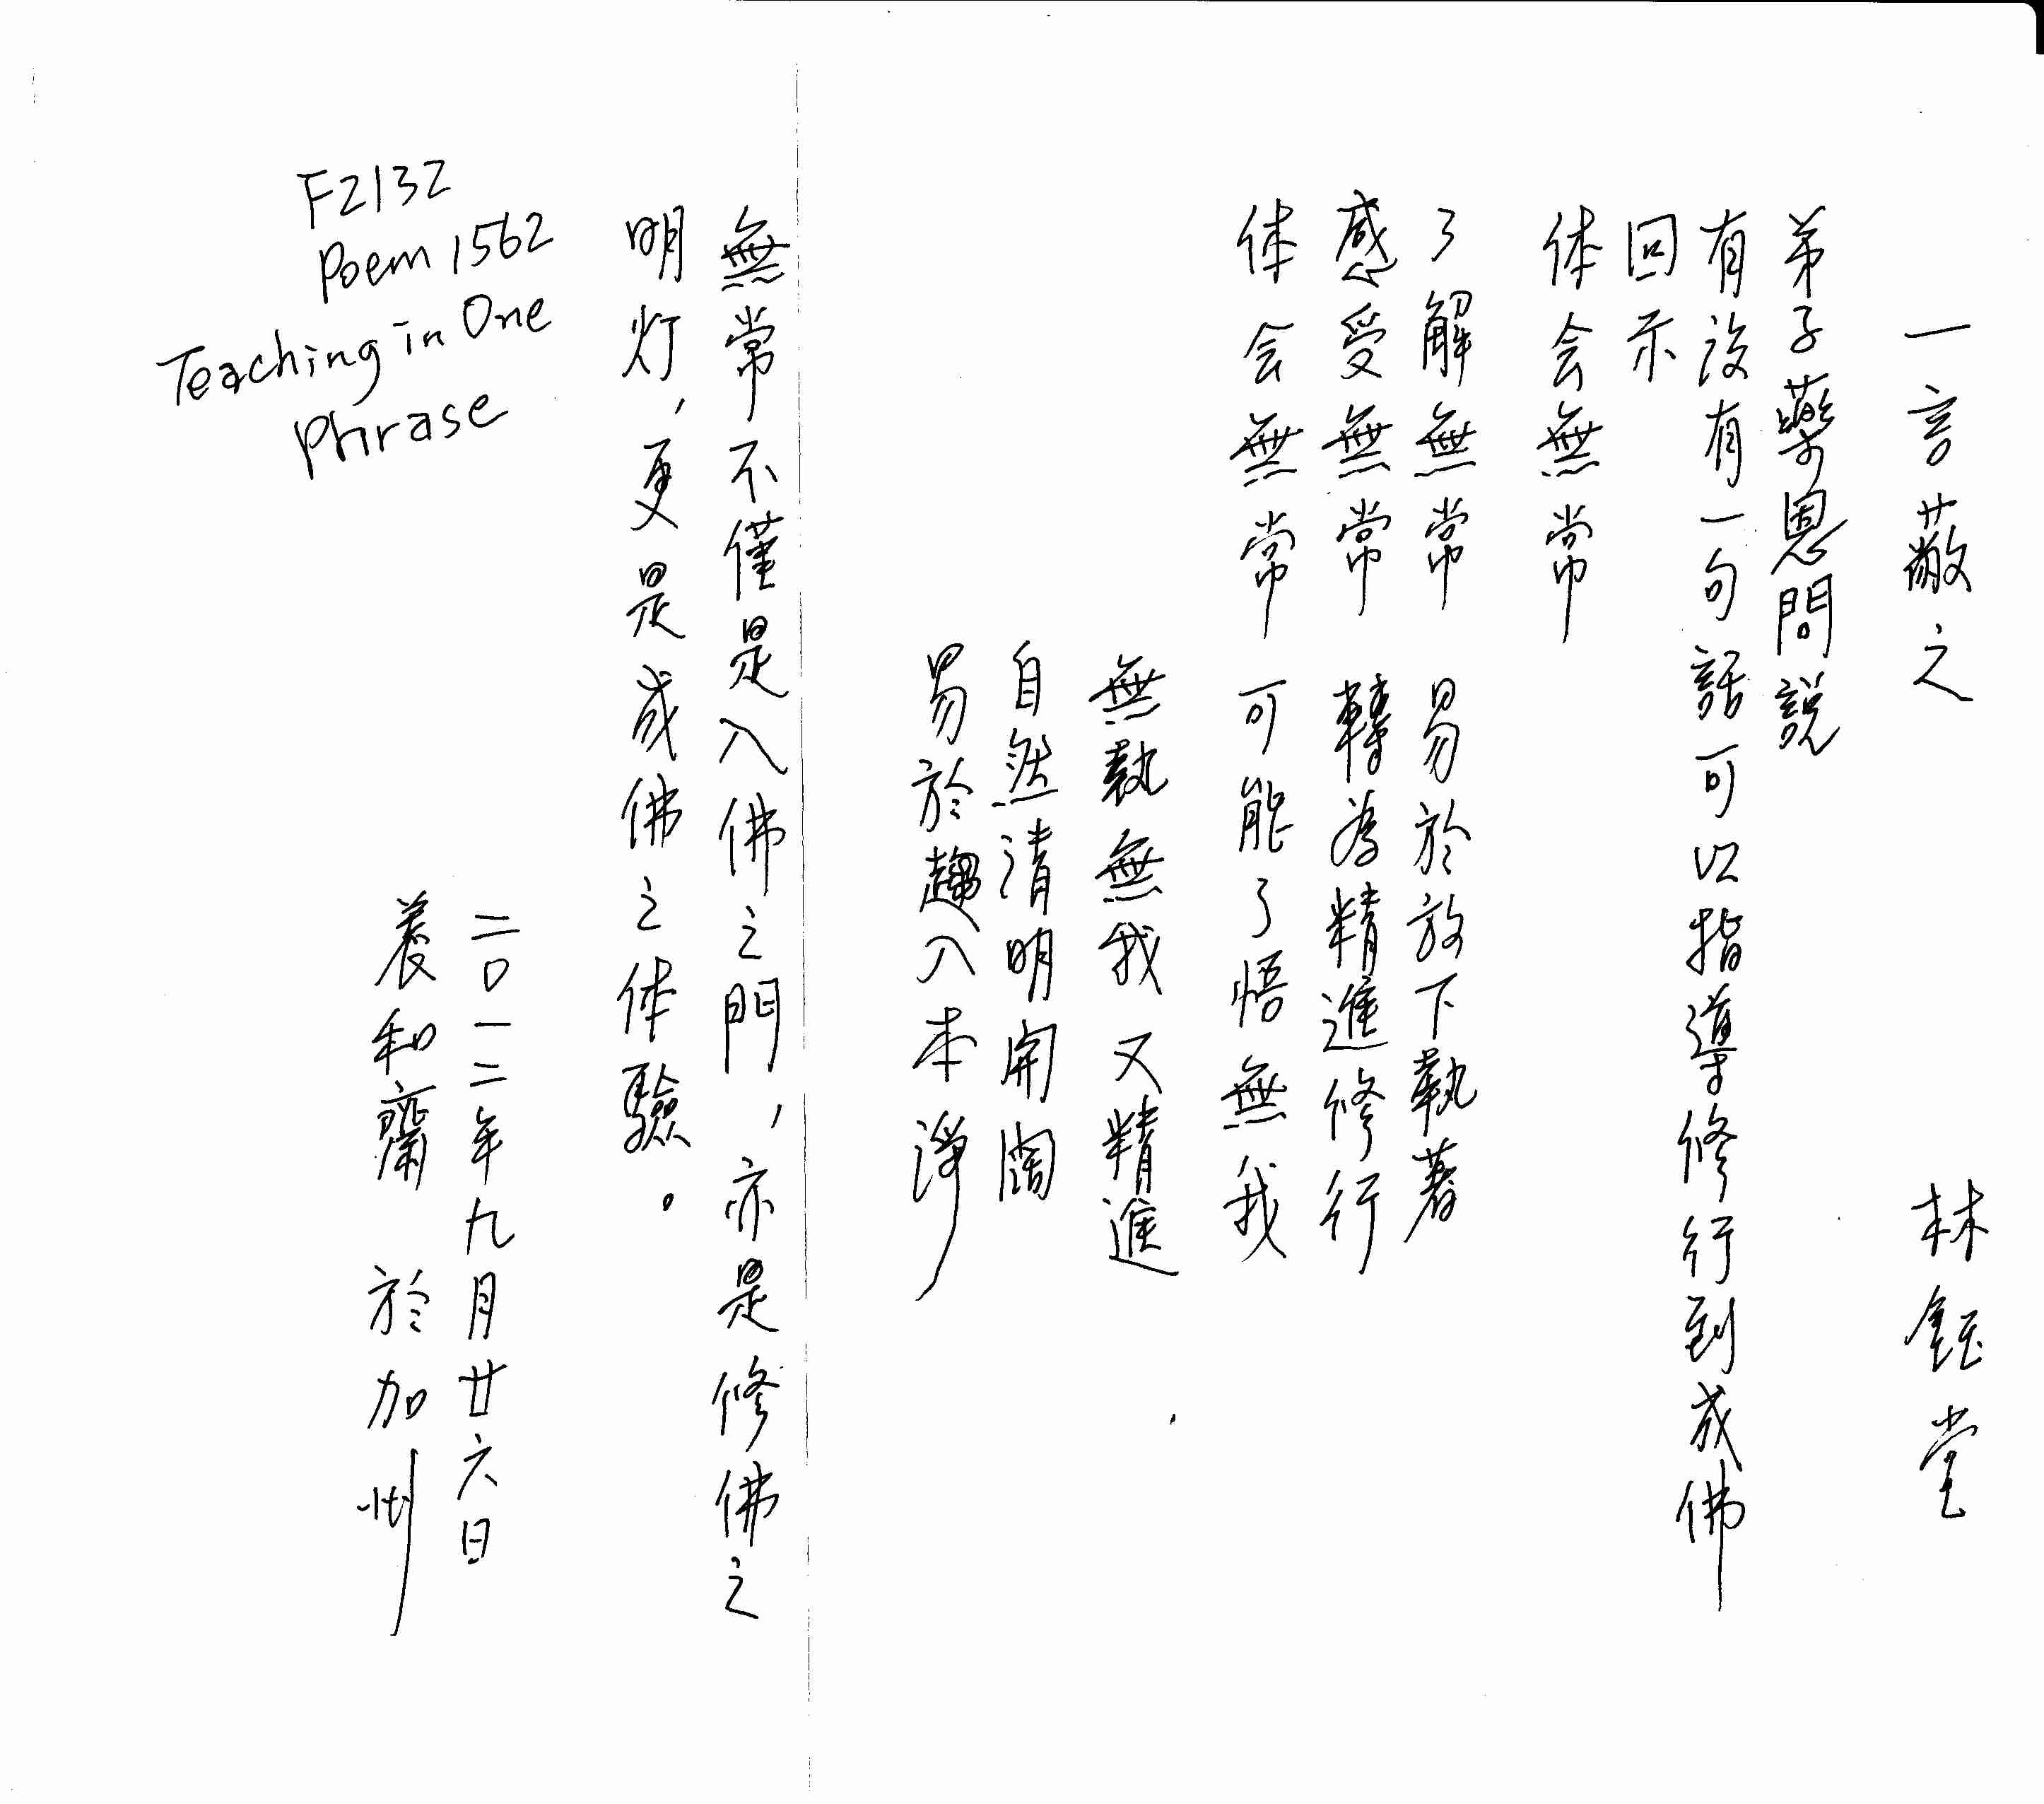 一言蔽之 林鈺堂
弟子藥恩問說
有沒有一句話可以指導修行到成佛
回示
体会無常
了解無常 易於放下執著
感受無常 轉為精進修行
体会無常 可能了悟無我
無執無我 又精進
自然清明開闊
易於趨入本淨
無常不僅是入佛之門，亦是修佛之
明灯，更是成佛之体驗。
二〇一二年九月廿六日
養和齋 於加州
F2132
Poem 1562
Teaching in One
Phrase